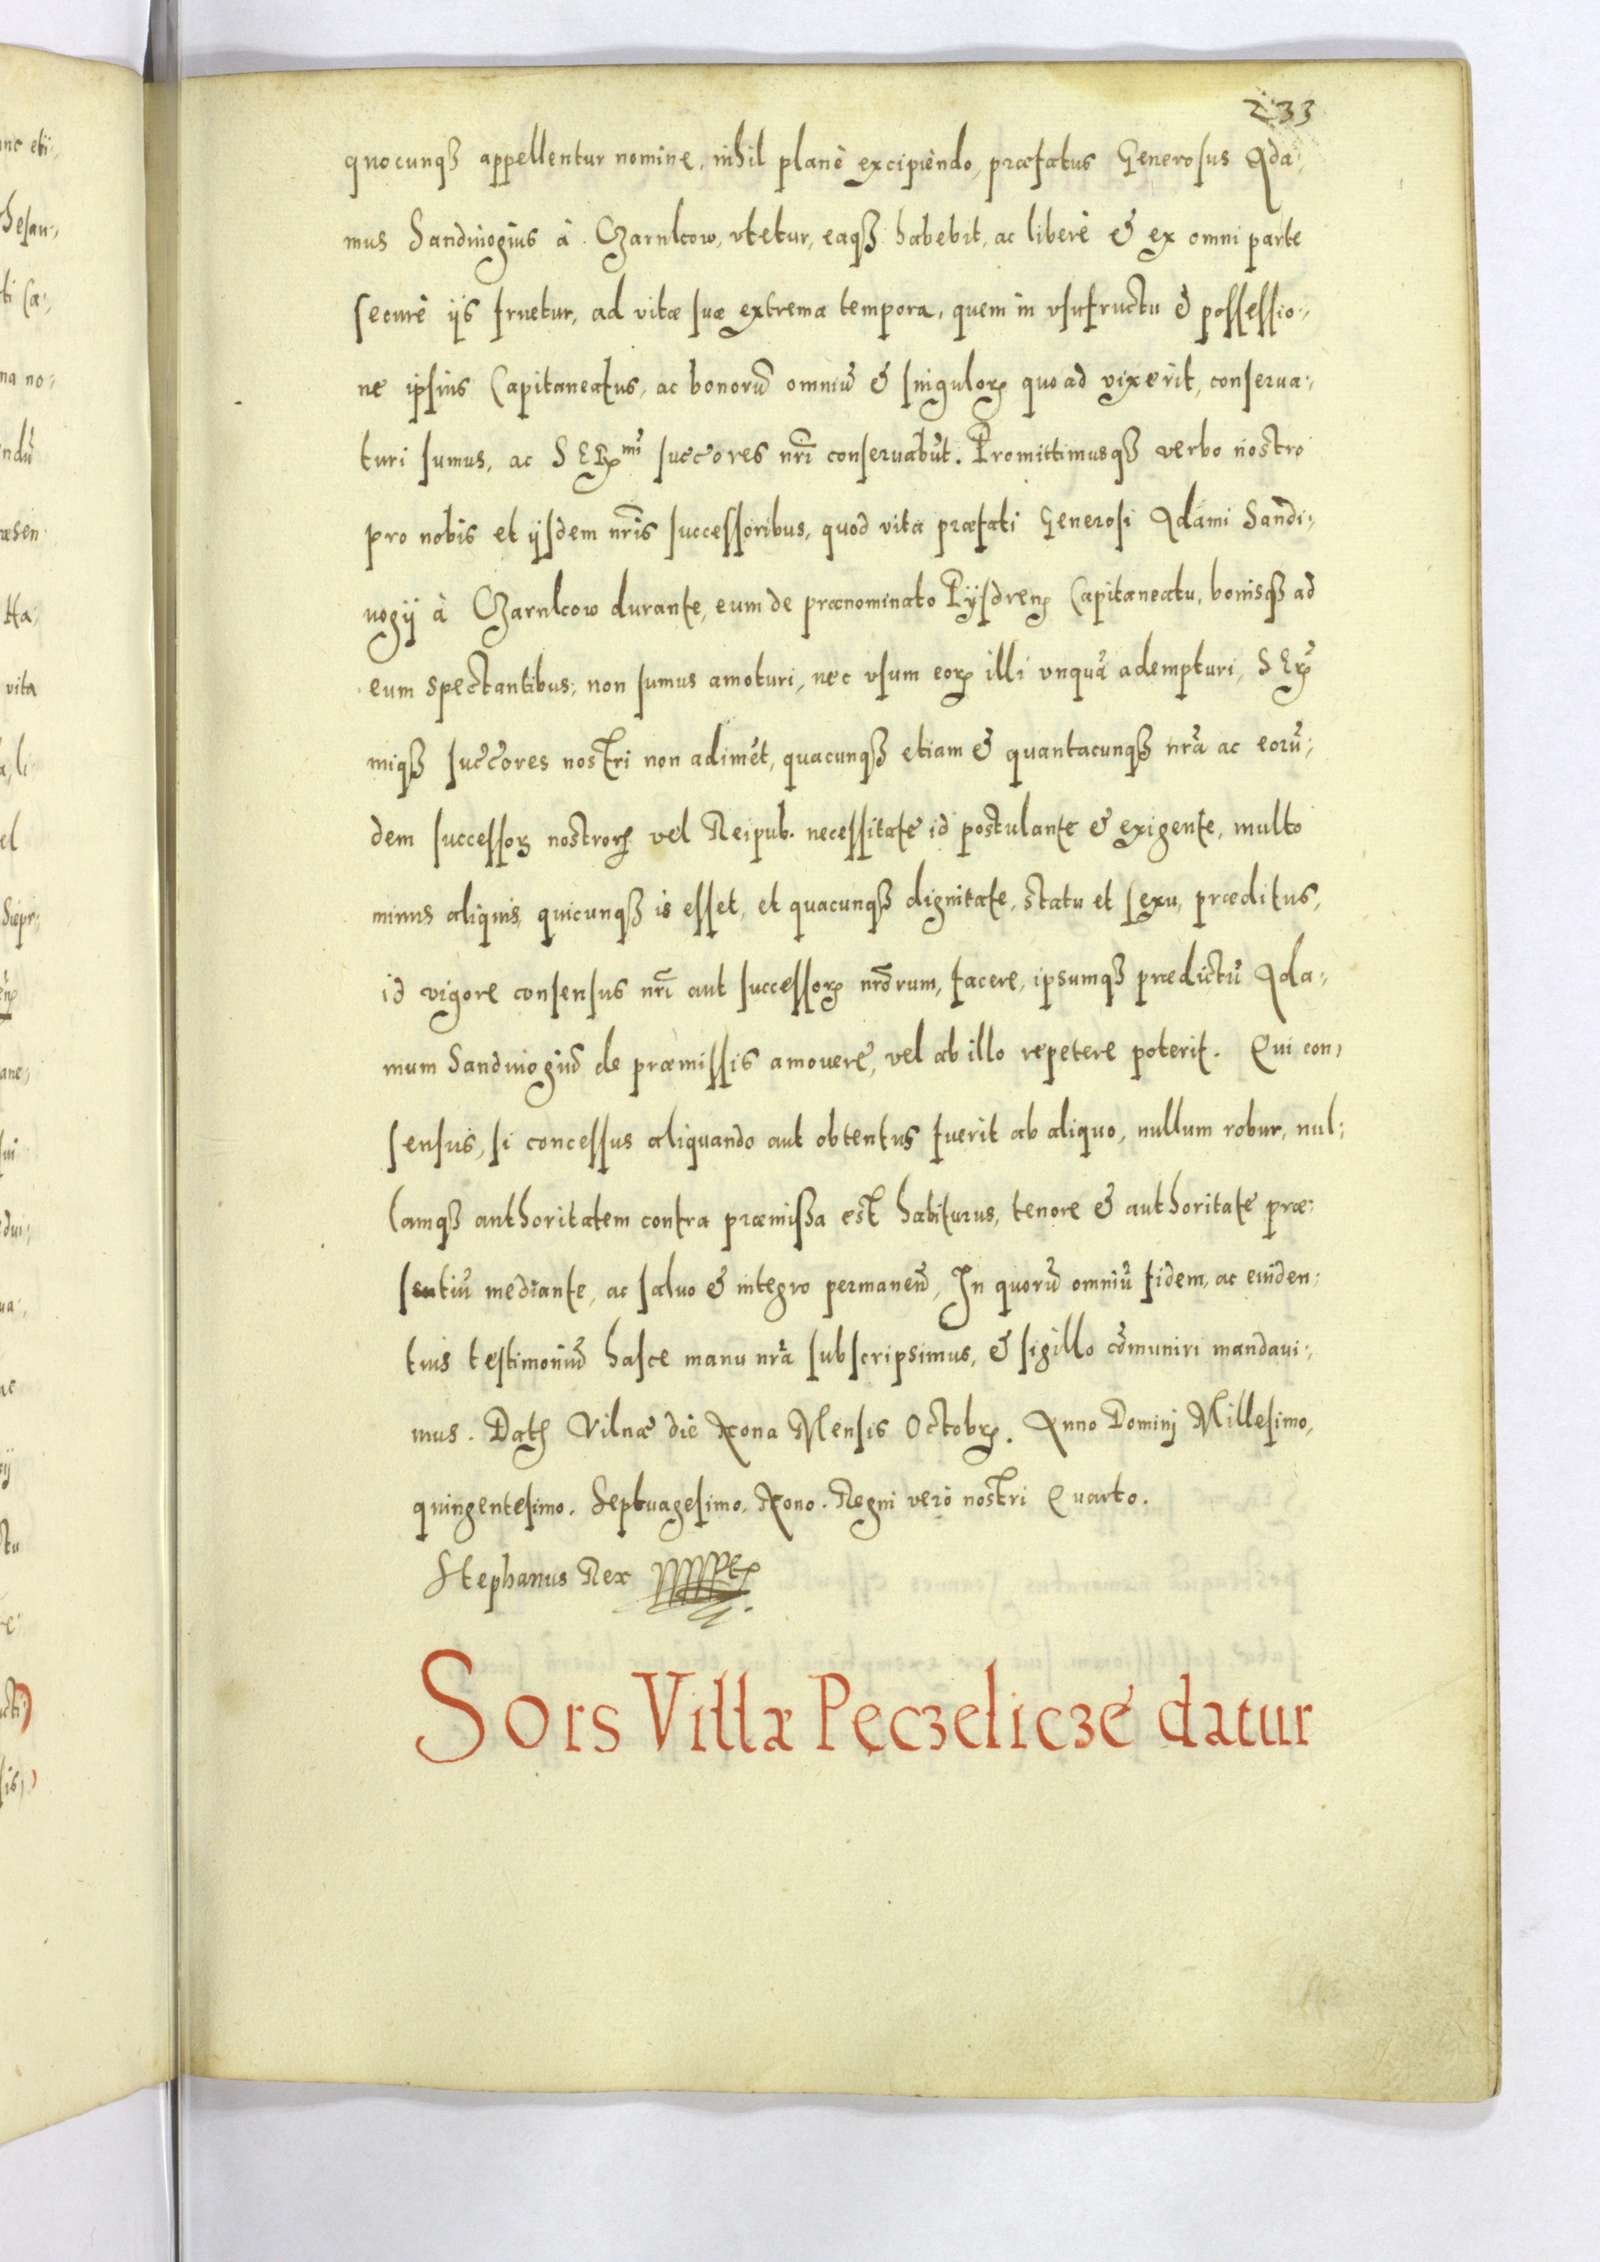 233
quocunqȝ appellentur nomine, nihil planè excipiendo, præfatus Generosus Ada-
mus Sandiuogius à Czarnkow, vtetur, eaqȝ habebit, ac liberè & ex omni parte
securè ijs fruetur, ad vitæ suæ extrema tempora, quem in vsufructu & possessio-
ne ipsius Capitaneatus, ac bonorū omniū & singuloꝝ quoad vixerit, conserua-
turi sumus, ac SERmi succores nr̃i conseruabūt. Promittimusqȝ verbo nostro
pro nobis et ijsdem nr̃is successoribus, quod vita præfati Generosi Adami Sandi-
uogij à Czarnkow durante, eum de prænominato Pijsdreñ Capitaneatu, bonisqȝ ad
eum spectantibus, non sumus amoturi, nec vsum eoꝝ illi vnquā adempturi, SERe
miqȝ succores nostri non adimēt, quacunqȝ etiam & quantacunqȝ nr̃a ac eorū-
dem successoꝝ nostroꝝ vel Reipub. necessitate id postulante & exigente, multo
minus aliquis, quicunqȝ is esset, et quacunqȝ dignitate, statu et sexu, præditus,
id vigore consensus nr̃i aut successoꝝ nr̃orum, facere, ipsumqȝ prædictū Ada-
mum Sandiuogiū de præmissis amouere, vel ab illo repetere poterit. Qui con-
sensus, si concessus aliquando aut obtentus fuerit ab aliquo, nullum robur, nul-
lamqȝ authoritatem contra præmissa est habiturus, tenore & authoritate præ-
sentiū mediante, ac saluo & integro permaneñ, In quorū omniū fidem, ac euiden-
tius testimoniū hasce manu nr̃a subscripsimus, & sigillo cōmuniri mandaui-
mus. Datȝ Vilnæ die Nona Mensis Octobꝝ. Anno Domini Millesimo,
quingentesimo, Septuagesimo, Nono. Regni verò nostri Quarto.
Stephanus Rex
Sors Villæ Pęczelicze datur
anc eti-
ti Ca-
na no-
ndū
vita
el